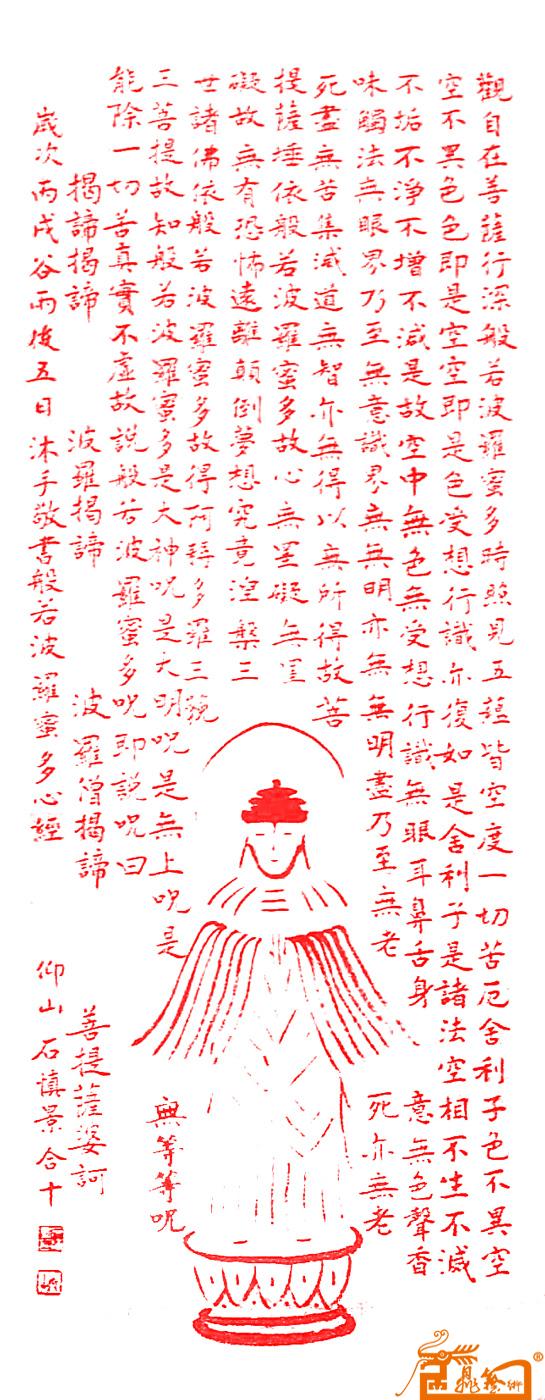 觀自在菩薩行深般若波羅蜜多時照見五蘊皆空度一切苦厄舍利子色不異空
空不異色色即是空空即是色受想行識亦復如是舍利子是諸法空相不生不滅
不垢不淨不增不減是故空中無色無受想行識無眼耳鼻舌身意無色聲香
味觸法無眼界乃至無意識界無無明亦無無明盡乃至無老死亦無老
死盡無苦集滅道無智亦無得以無所得故菩
提薩埵依般若波羅蜜多故心無罣礙無罣
礙故無有恐怖遠離顛倒夢想究竟涅槃三
世諸佛依般若波羅蜜多故得阿耨多羅三藐
三菩提故知般若波羅蜜多是大神呪是大明呪是無上呪是無等等呪
能除一切苦真實不虛故說般若波羅蜜多呪即說呪曰
揭諦揭諦 波羅揭諦 波羅僧揭諦 菩提薩婆訶
歲次丙戌谷雨後五日沐手敬書般若波羅蜜多心經 仰山石慎景合十